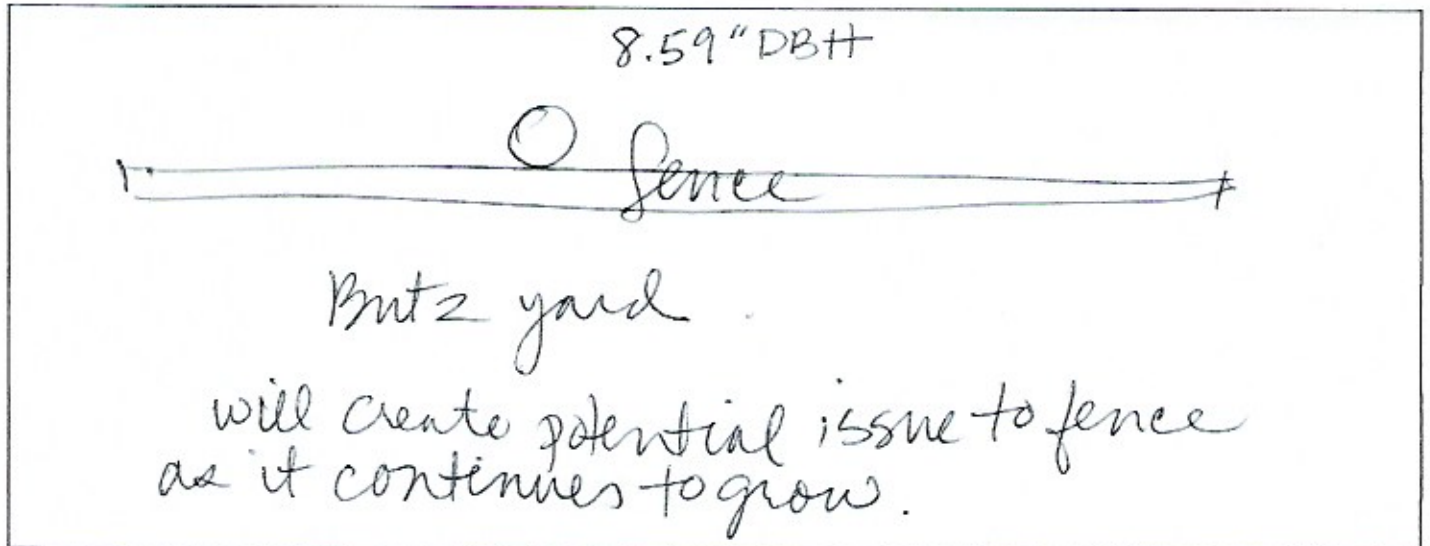 8.59" DBH
fence
Butz yard
will create potential issue to fence
as it continues to grow.